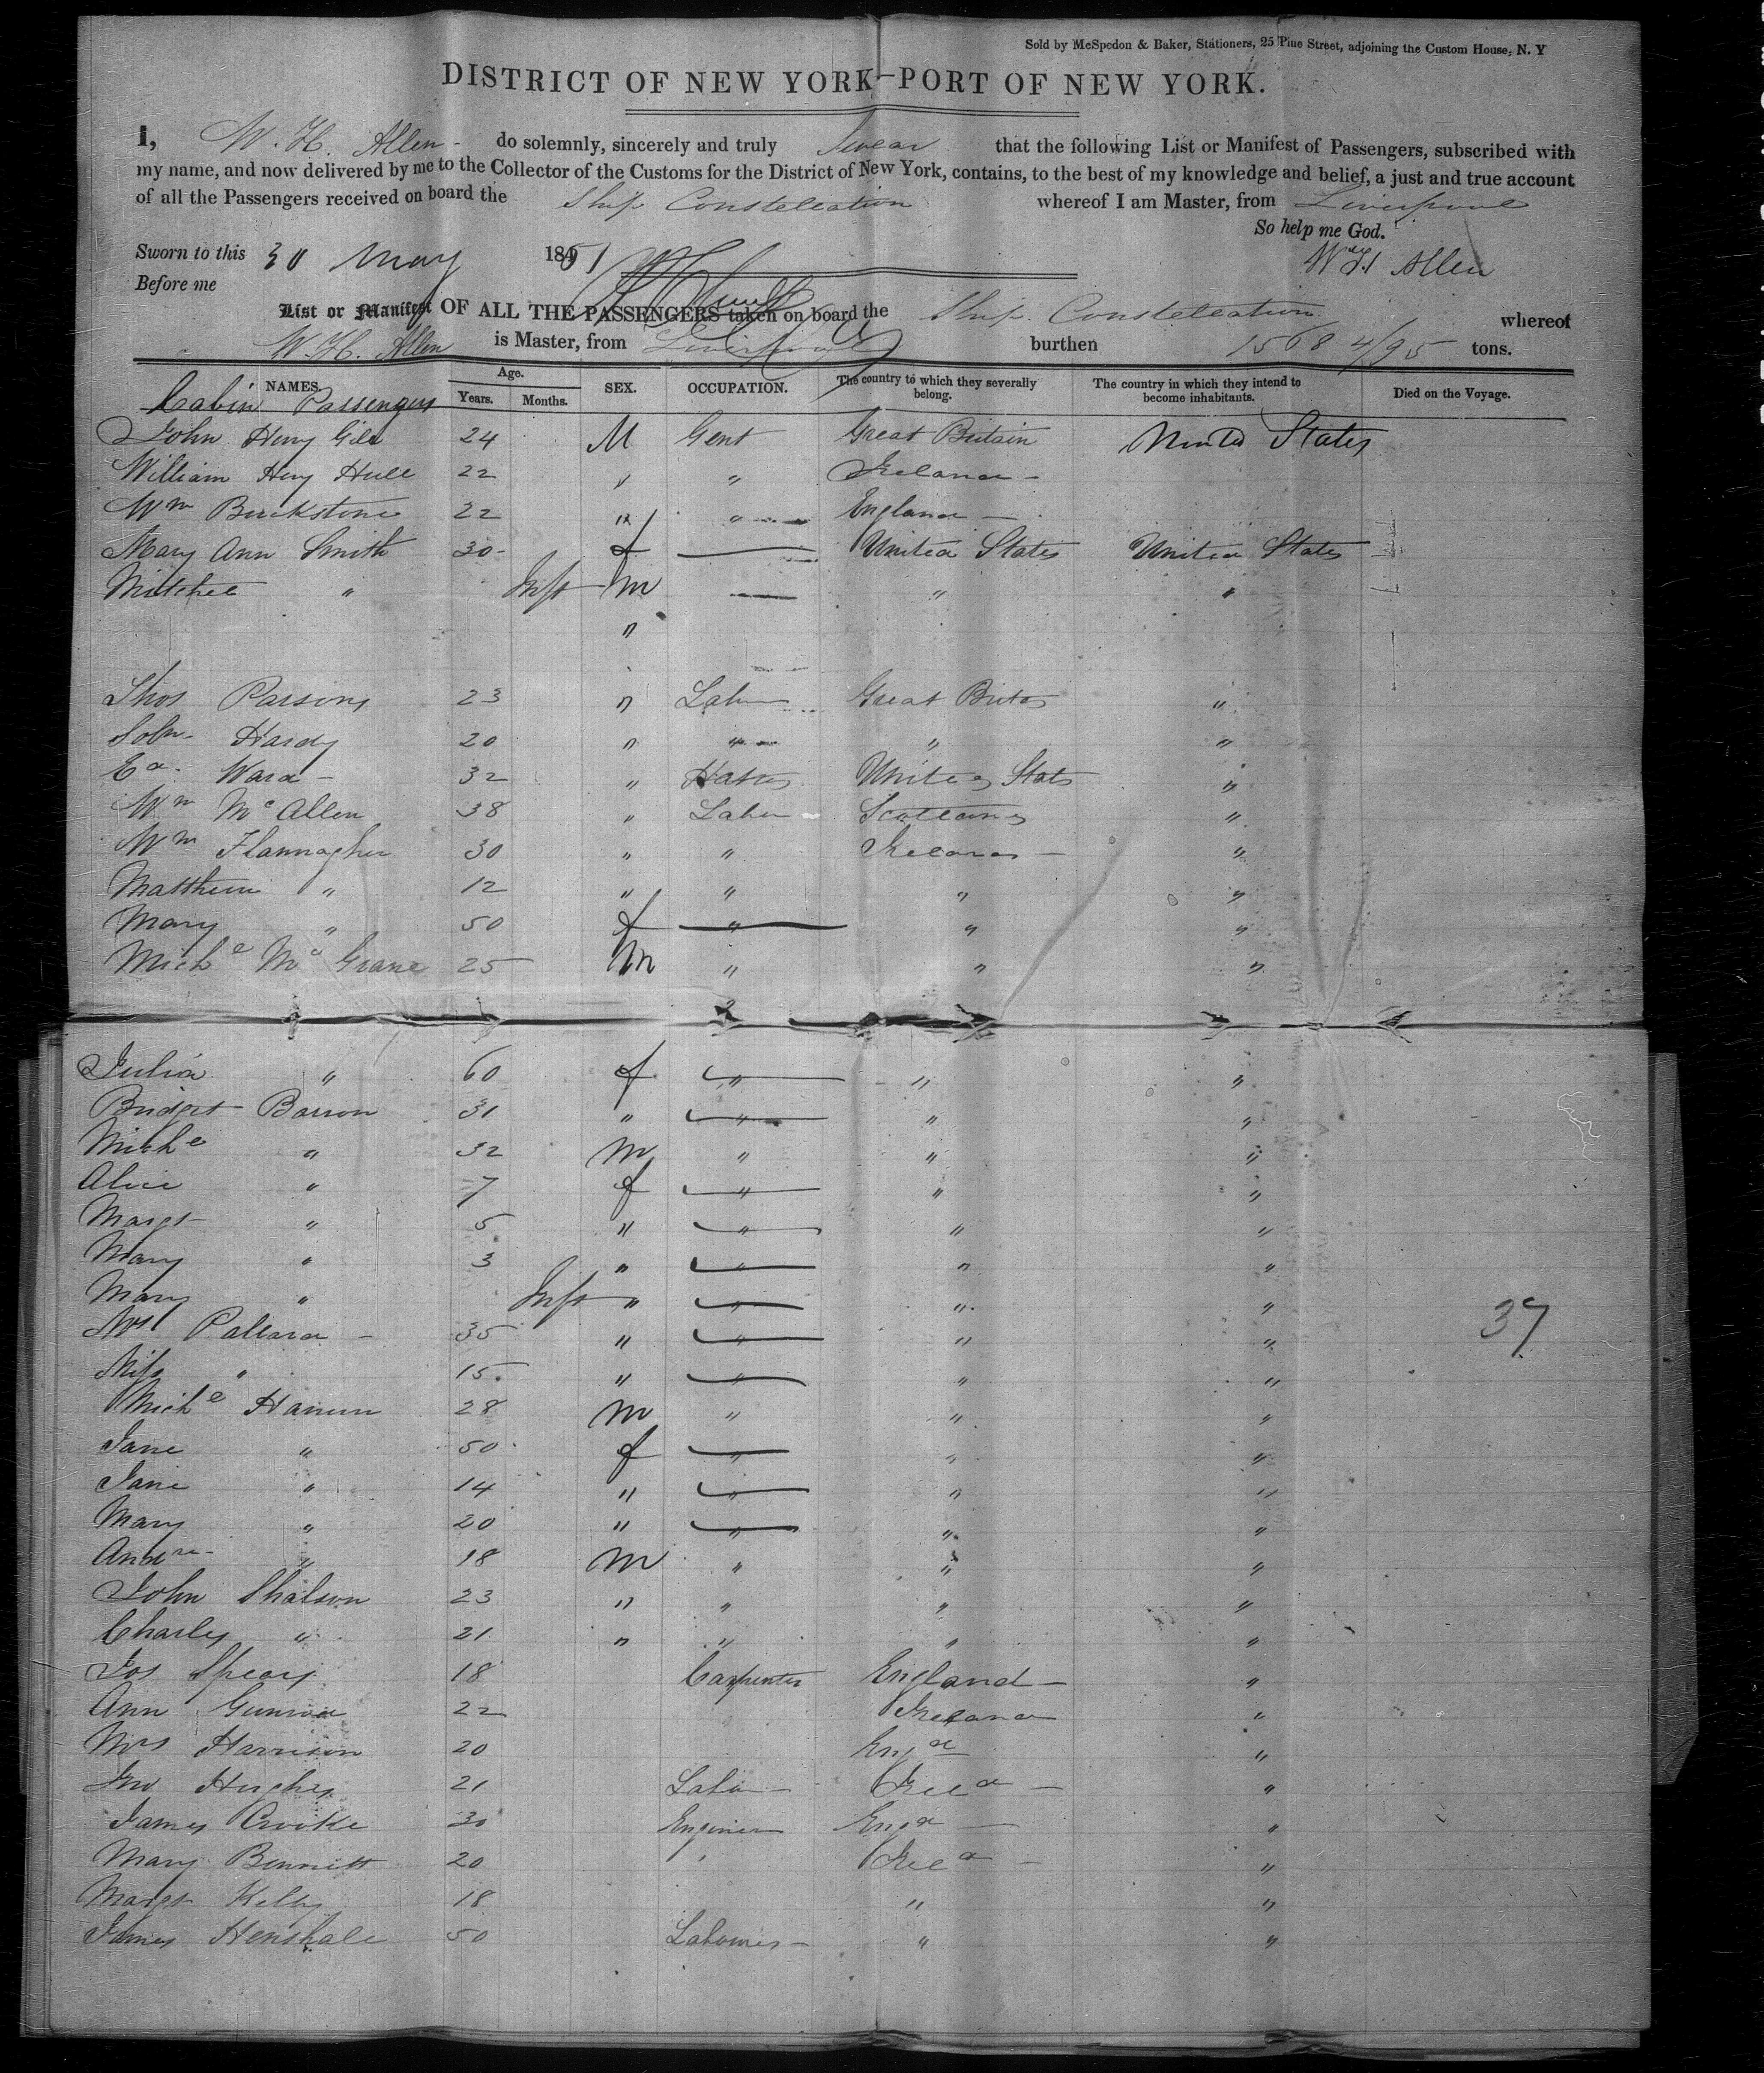 Sold by McSpedon & Baker, Stationers, 25 Pine Street, adjoining the Custom House, N. Y
DISTRICT OF NEW YORK–PORT OF NEW YORK.
I, W. H. Allen - do solemnly, sincerely and truly Swear that the following List or Manifest of Passengers, subscribed with
my name, and now delivered by me to the Collector of the Customs for the District of New York, contains, to the best of my knowledge and belief, a just and true account
of all the Passengers received on board the Ship Constellation whereof I am Master, from Liverpool
So help me God.
Sworn to this 30 May 1851 Wm H Allen
Before me
List or Manifest OF ALL THE PASSENGERS taken on board the Ship Constellation whereof
W. H. Allen is Master, from Liverpool burthen 1568 4/95 tons.
NAMES. Age. Years. Months. SEX. OCCUPATION. The country to which they severally belong. The country in which they intend to become inhabitants. Died on the Voyage.
Cabin Passengers
John Henry 24 M Gent Great Britain United States
William Heny Hull 22 " " Ireland -
Wm Birckstone 22 " " England -
Mary Ann Smith 30 - f — United States United States
Mitchel " Inft M — " "
"
Thos Parsons 23 " Labr Great Britn "
Soln Hardy 20 " " " "
Ed. Ward - 32 " United Stats "
Wm Mc Allen 38 " Labr Scotland "
Wm Flannagher 30 " " Ireland - "
Matthew " 12 " " " "
Mary " 50 f " " "
Michl Mc Grane 25 M " " "
Julia " 60 f " " "
Bridget Barron 31 " " " "
Michl " 32 M " " "
Alice " 7 f " " "
Margt " 5 " " " "
Mary " 3 " " " "
Mary " Inft " " " "
Mrs Pallard - 35 " " " " 37
Miss " 15 " " " "
Michl Hanun 28 M " " "
Jane " 50 f " " "
Jane " 14 " " " "
Mary " 20 " " " "
Andw " 18 M " " "
John Shalson 23 " " " "
Charles " 21 " " " "
Jos Spears 18 Carpenter England - "
Ann 22 Ireland "
Mrs Harrison 20 Engd "
Jno Hughes 21 Labr - Ireld - "
James Crooke 30 Engineer Engd - "
Mary Bennett 20 ' Ireld - "
Margt Kelly 18 " "
James Henshall 50 Labourer - " "